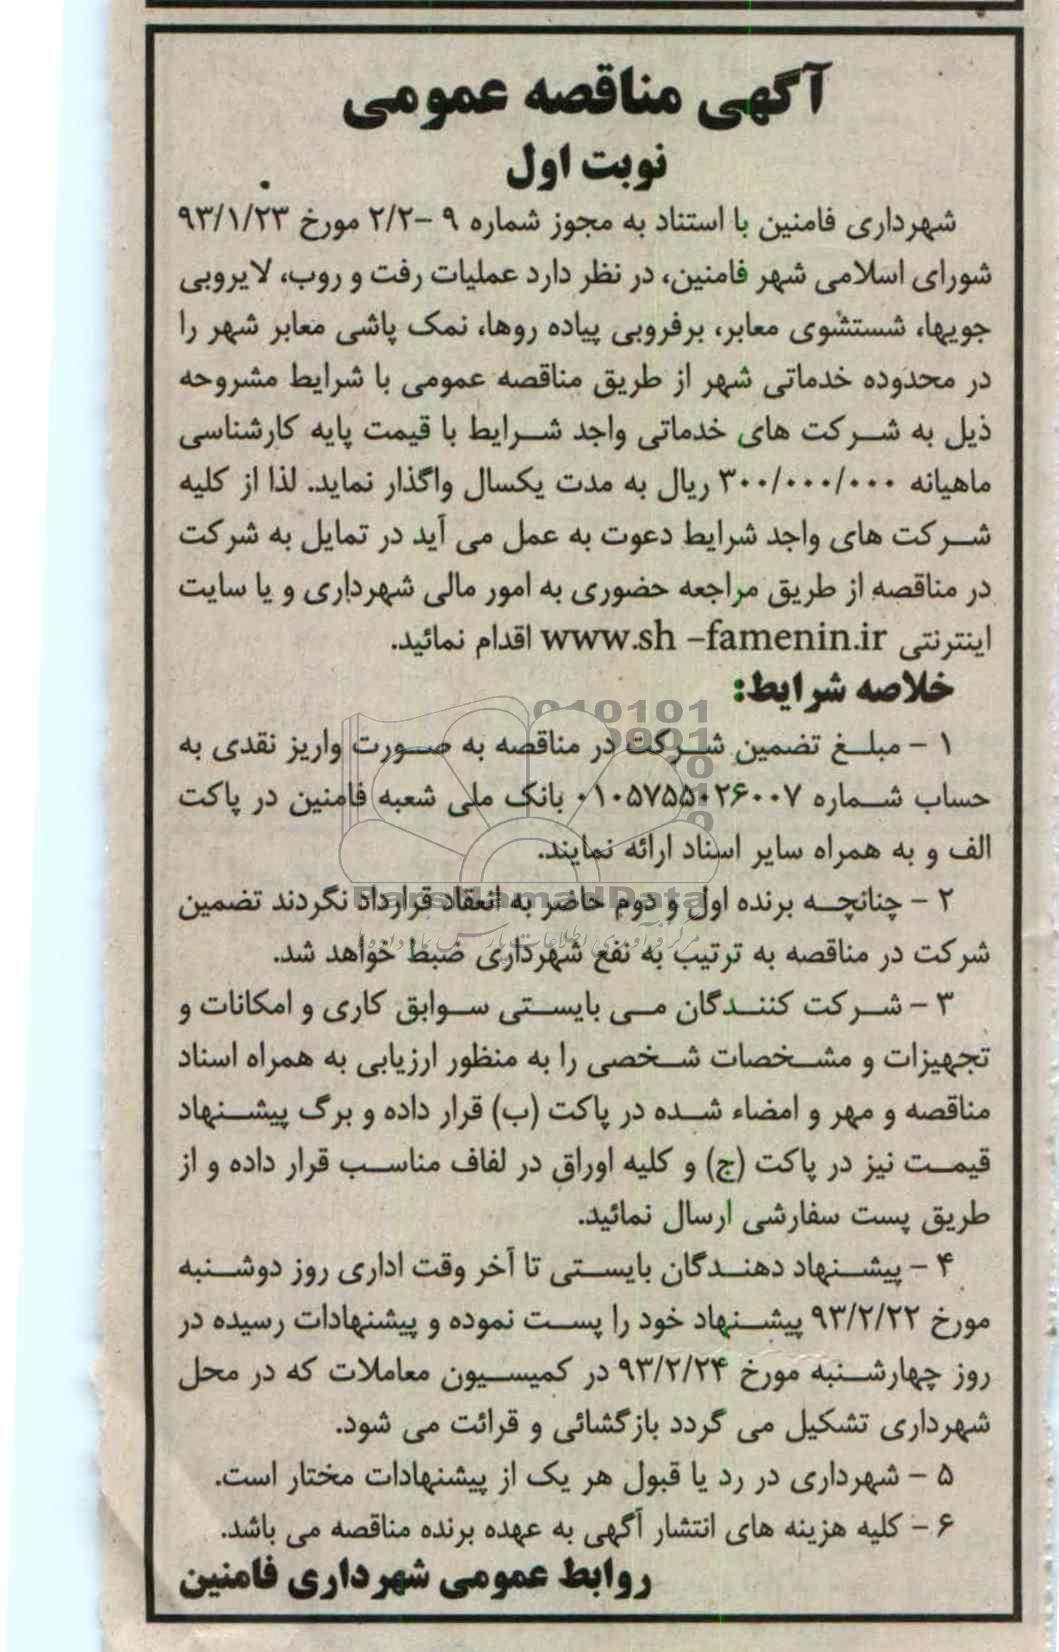 آگهی مناقصه عمومی
نوبت اول
شهرداری فامنین با استناد به مجوز شماره ۹ –۲/۲ مورخ ۹۳/۱/۲۳
شورای اسلامی شهر فامنین، در نظر دارد عملیات رفت و روب، لایروبی
جویها، شستشوی معابر، برفروبی پیاده روها، نمک پاشی معابر شهر را
در محدوده خدماتی شهر از طریق مناقصه عمومی با شرایط مشروحه
ذیل به شرکت های خدماتی واجد شرایط با قیمت پایه کارشناسی
ماهیانه ۳۰۰/۰۰۰/۰۰۰ ریال به مدت یکسال واگذار نماید. لذا از کلیه
شرکت های واجد شرایط دعوت به عمل می آید در تمایل به شرکت
در مناقصه از طریق مراجعه حضوری به امور مالی شهرداری و یا سایت
اینترنتی www.sh –famenin.ir اقدام نمائید.
خلاصه شرایط:
۱ – مبلغ تضمین شرکت در مناقصه به صورت واریز نقدی به
حساب شماره ۰۱۰۵۷۵۵۰۲۶۰۰۷ بانک ملی شعبه فامنین در پاکت
الف و به همراه سایر اسناد ارائه نمایند.
۲ – چنانچه برنده اول و دوم حاضر به انعقاد قرارداد نگردند تضمین
شرکت در مناقصه به ترتیب به نفع شهرداری ضبط خواهد شد.
۳ – شرکت کنندگان می بایستی سوابق کاری و امکانات و
تجهیزات و مشخصات شخصی را به منظور ارزیابی به همراه اسناد
مناقصه و مهر و امضاء شده در پاکت (ب) قرار داده و برگ پیشنهاد
قیمت نیز در پاکت (ج) و کلیه اوراق در لفاف مناسب قرار داده و از
طریق پست سفارشی ارسال نمائید.
۴ – پیشنهاد دهندگان بایستی تا آخر وقت اداری روز دوشنبه
مورخ ۹۳/۲/۲۲ پیشنهاد خود را پست نموده و پیشنهادات رسیده در
روز چهارشنبه مورخ ۹۳/۲/۲۴ در کمیسیون معاملات که در محل
شهرداری تشکیل می گردد بازگشائی و قرائت می شود.
۵ – شهرداری در رد یا قبول هر یک از پیشنهادات مختار است.
۶ – کلیه هزینه های انتشار آگهی به عهده برنده مناقصه می باشد.
روابط عمومی شهرداری فامنین
ParsNamadData